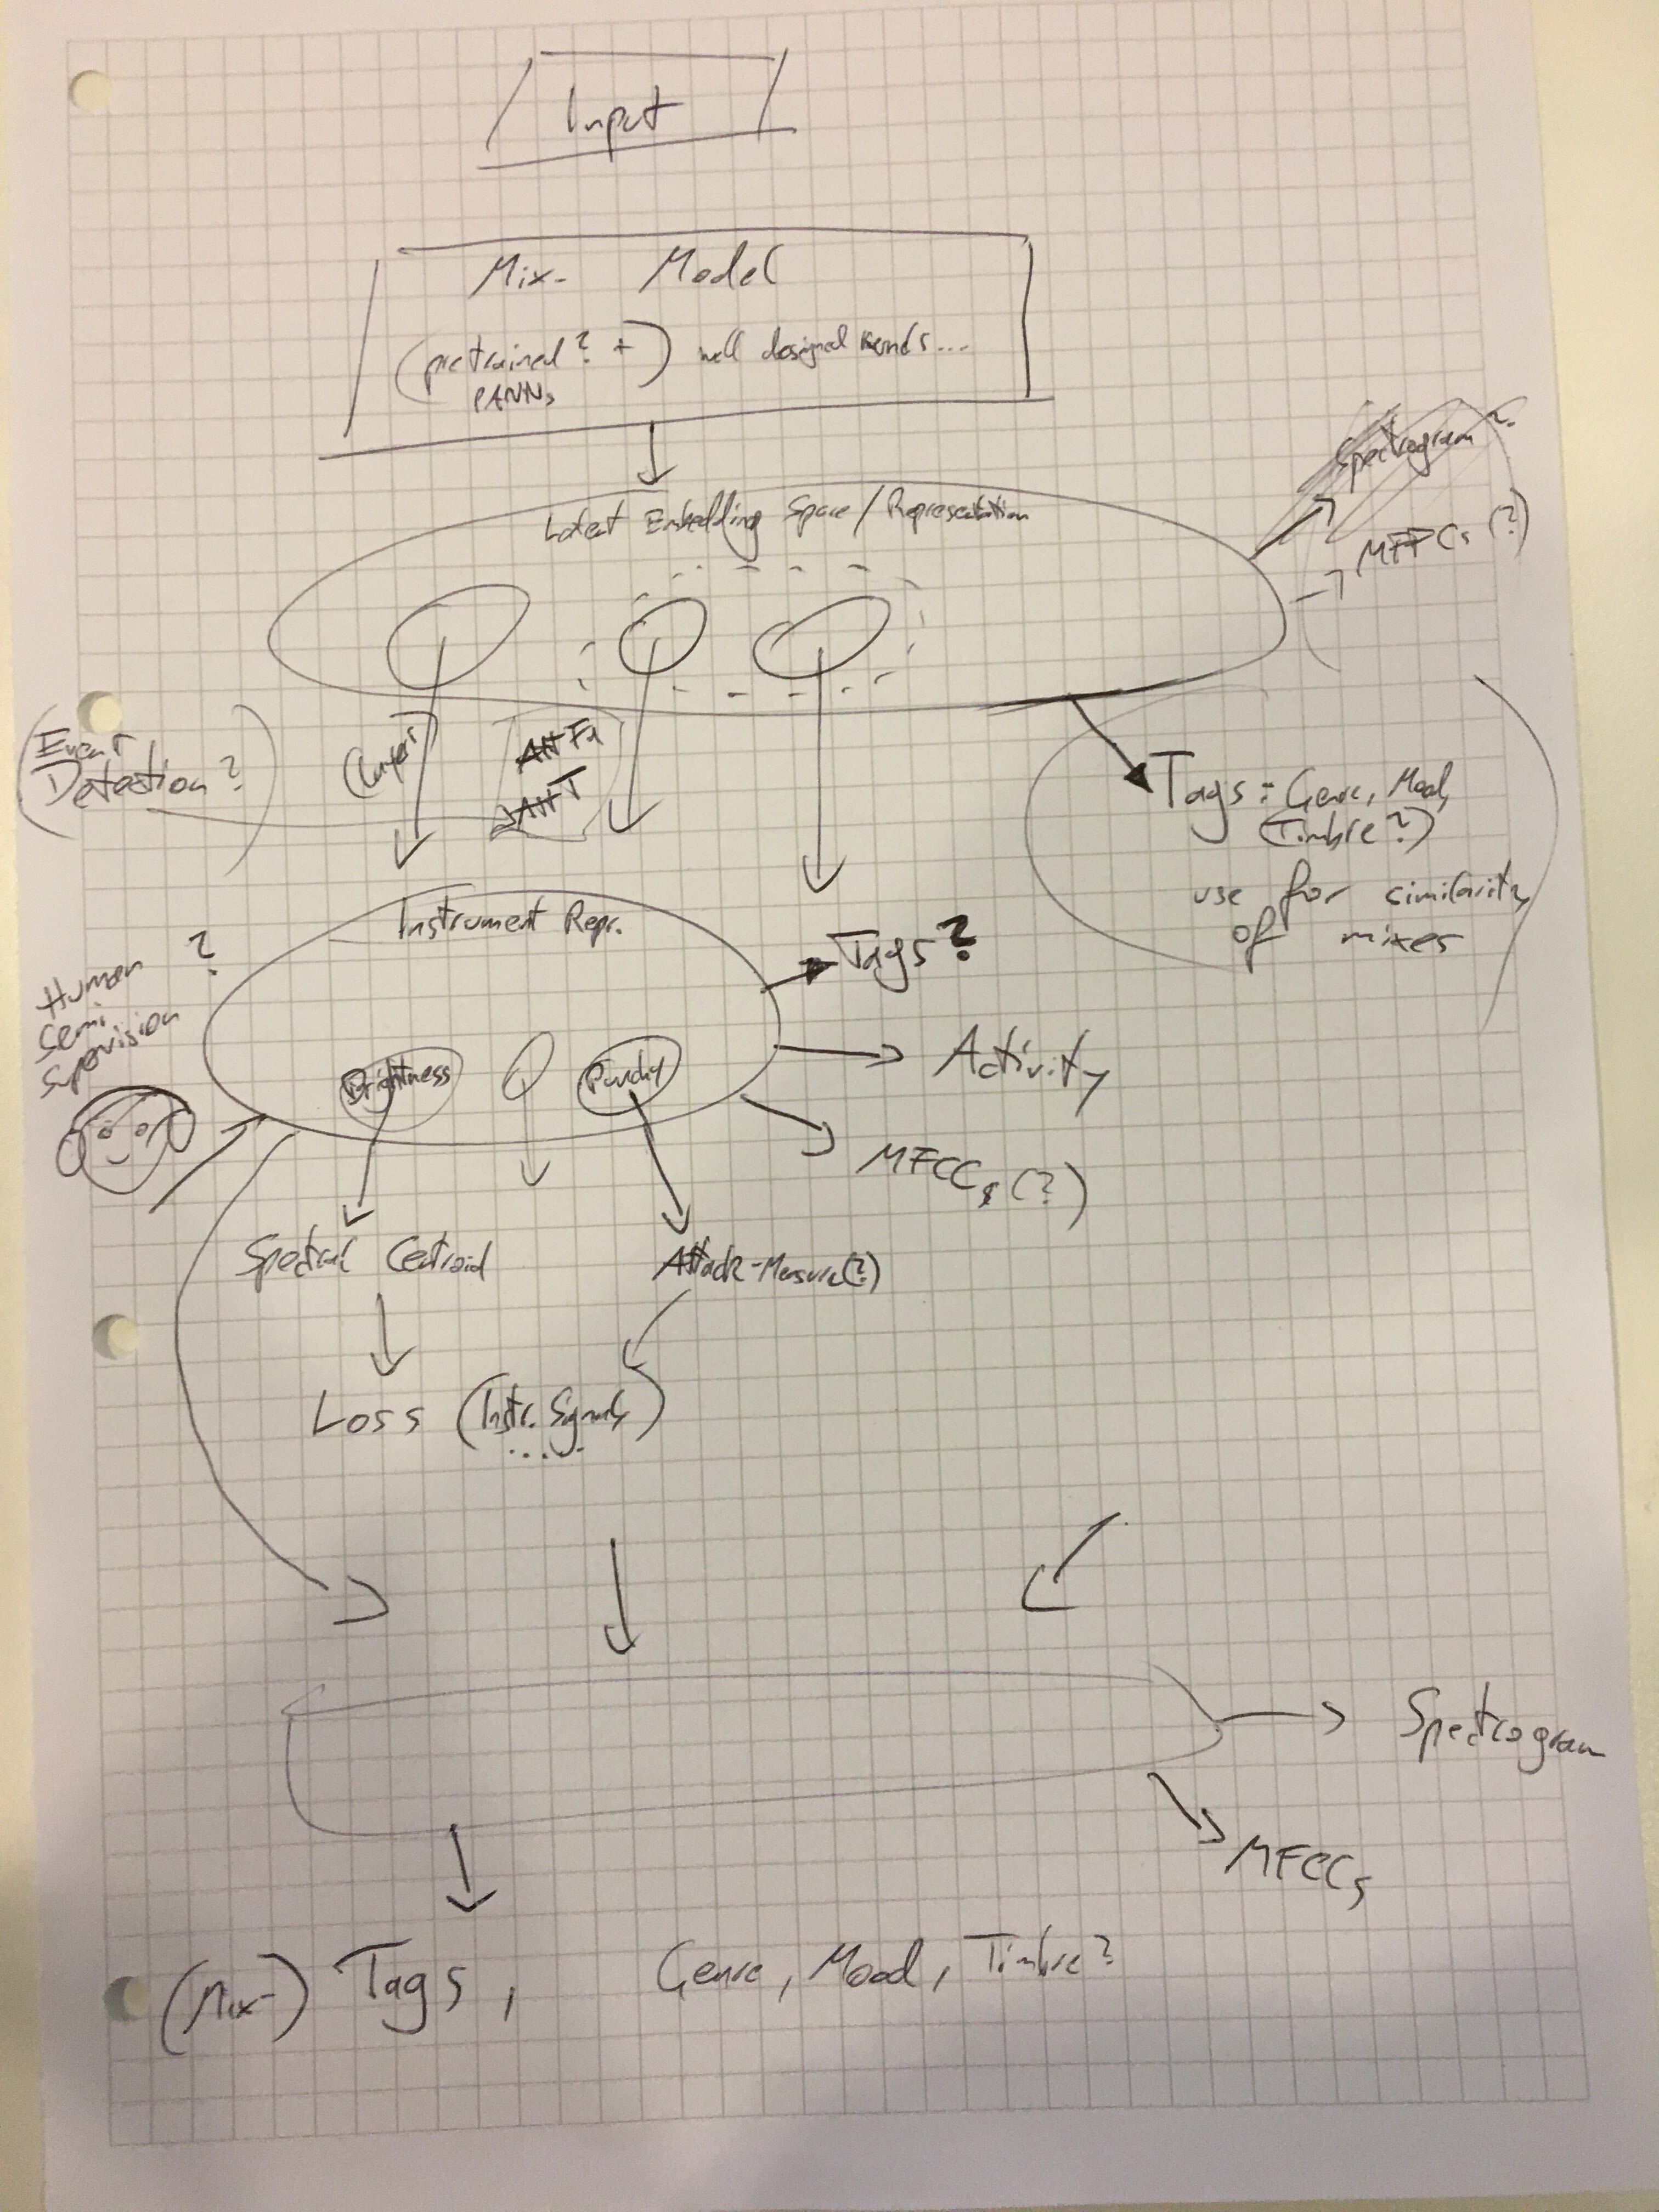 Input
Mix- Model
(pretrained? +) well designed
PANNs
Spectrogram?
MFPCs (?)
Latent Embedding Space/Representation
(Event
Detection?)
(Layer)
Tags: Genre, Mood,
(Timbre?)
use for similarity
of mixes
Instrument Repr.
Tags?
Human ?
Semi
Supervision
Activity
Brightness
Punchy
MFCCs (?)
Spectral Centroid
Attack-Measure(?)
Loss (Instr. Signals)
....
Spectrogram
MFCCs
(Mix-) Tags, Genre, Mood, Timbre?